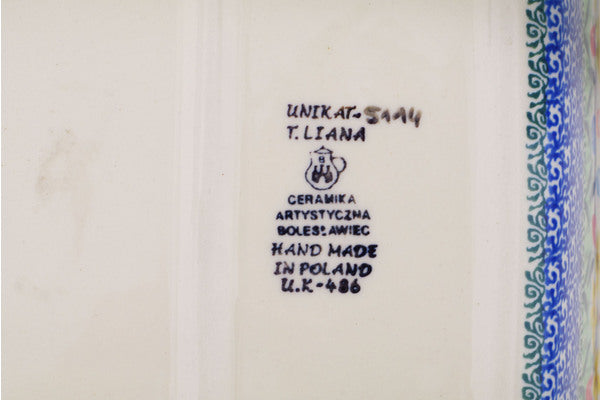 UNIKAT-5114
T. LIANA
B
CERAMIKA
ARTYSTYCZNA
BOLESŁAWIEC
HAND MADE
IN POLAND
U.K-486